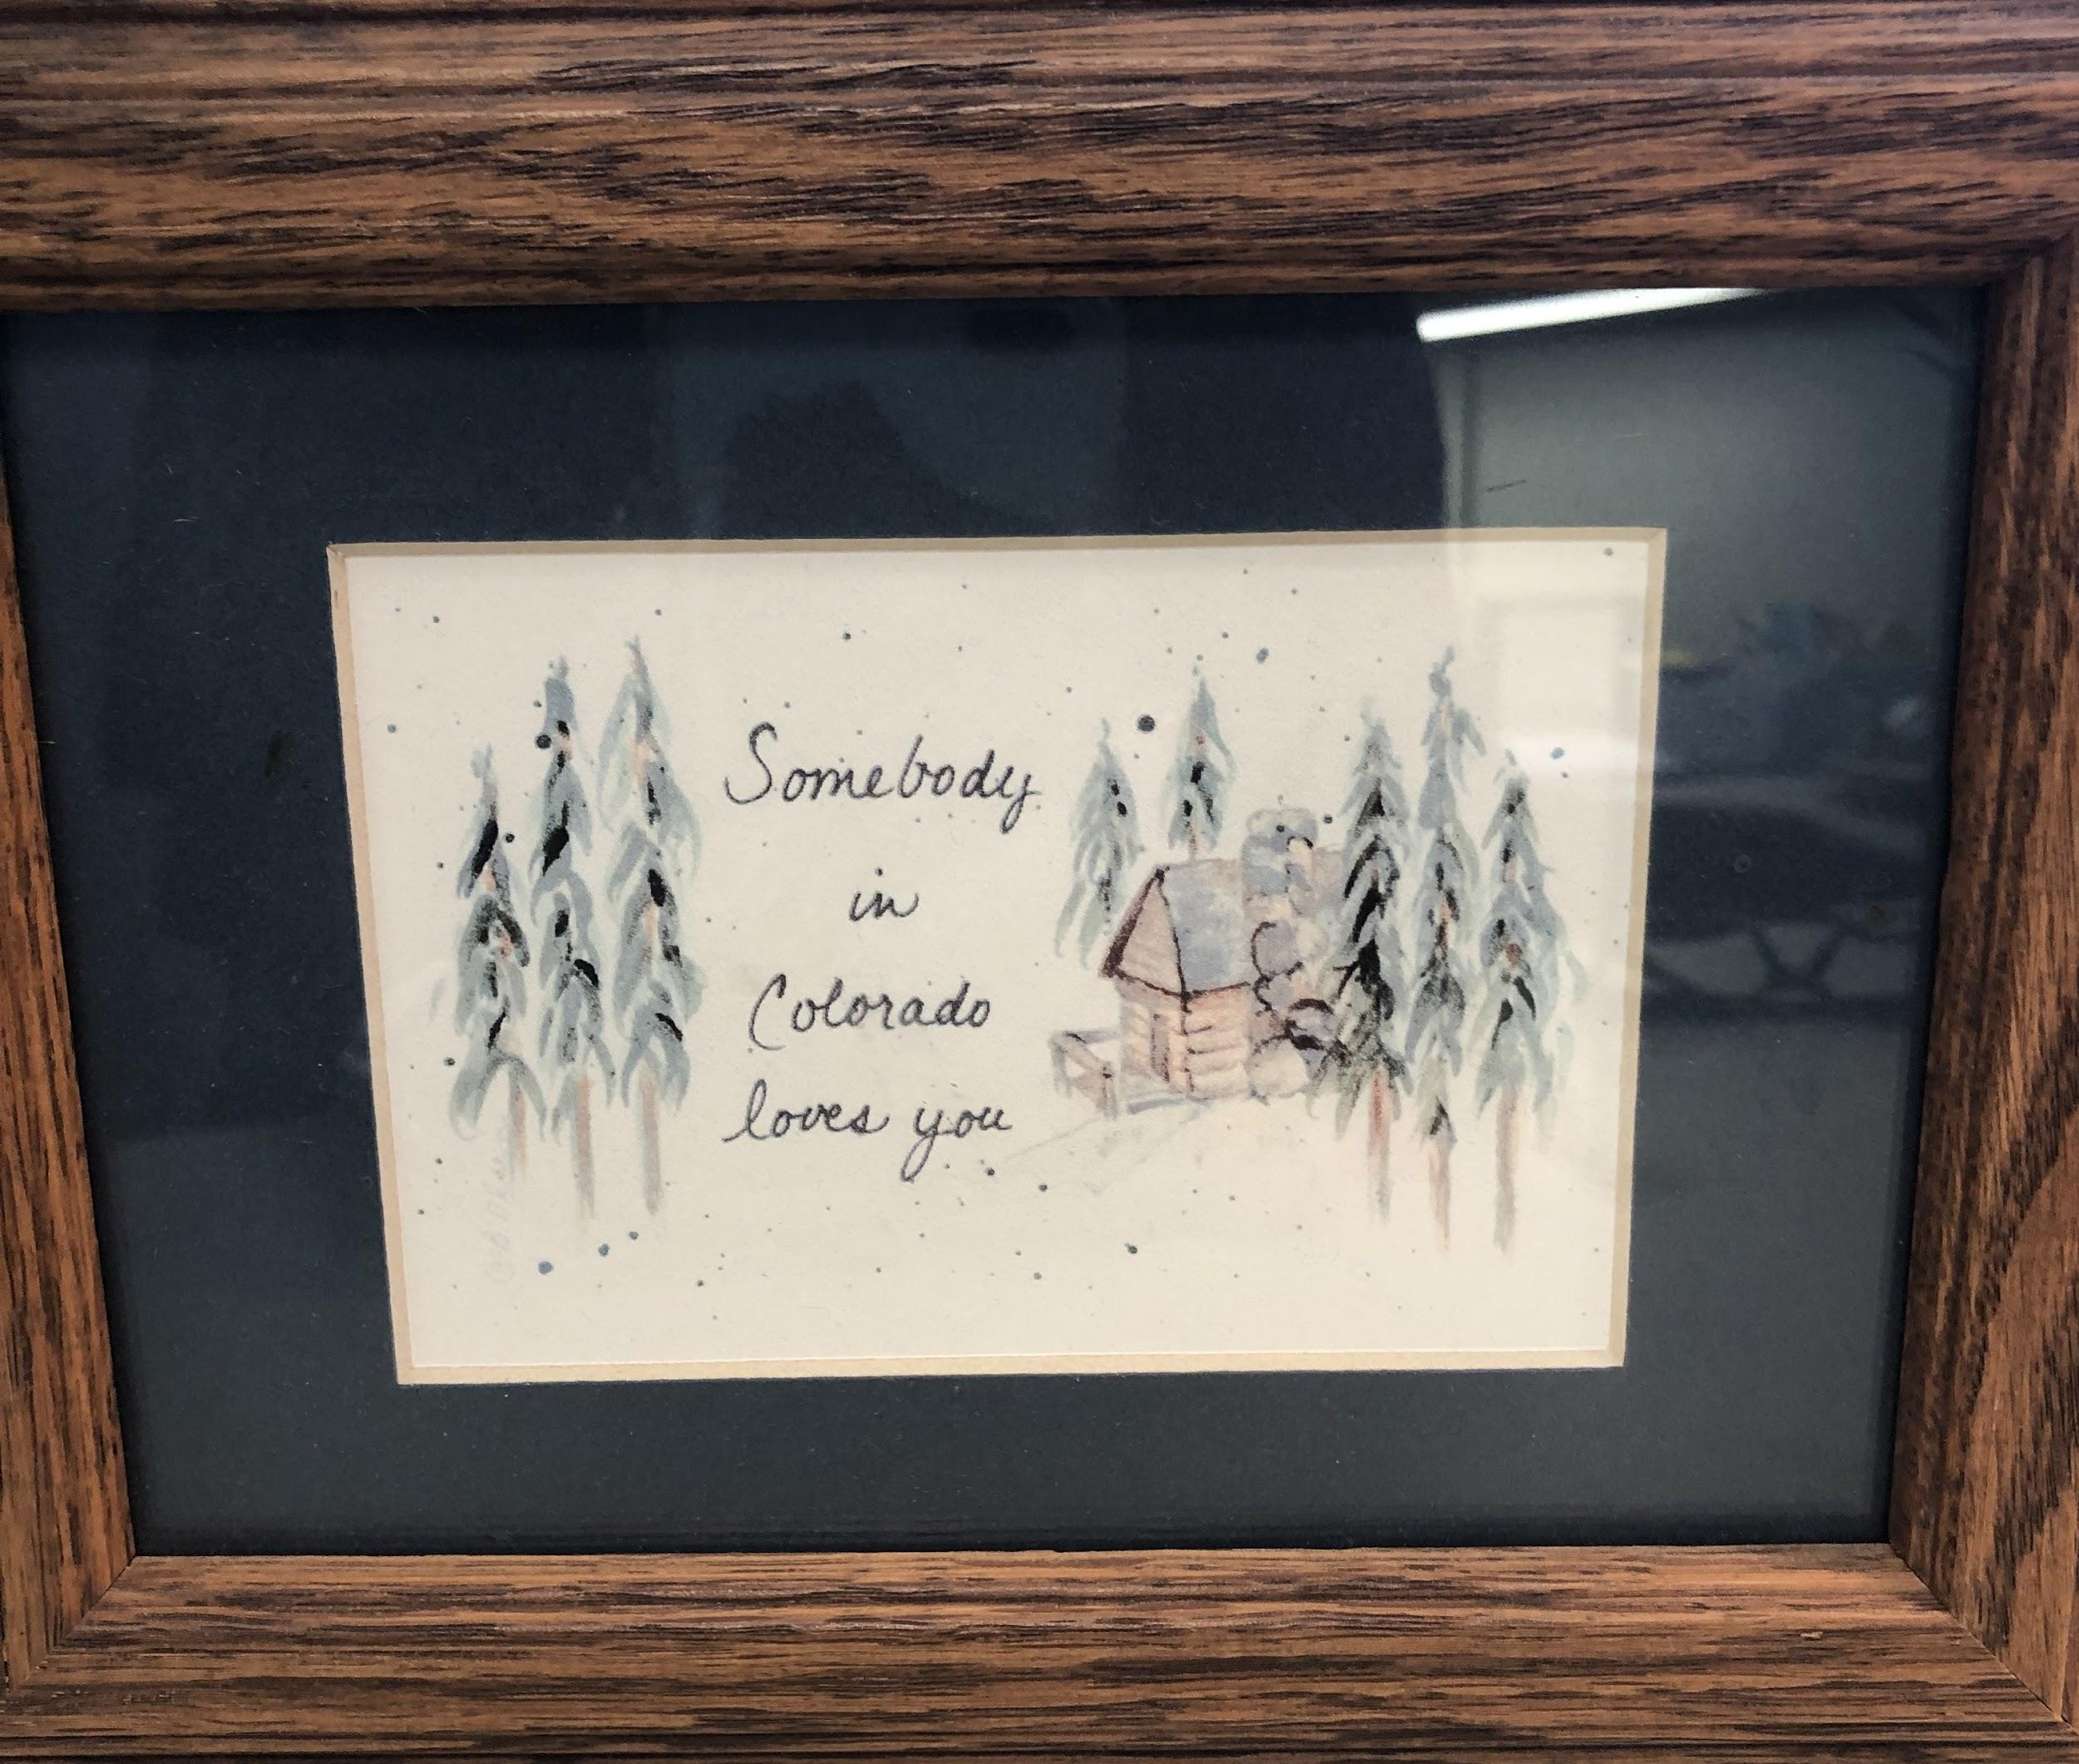 Somebody
in
Colorado
loves you